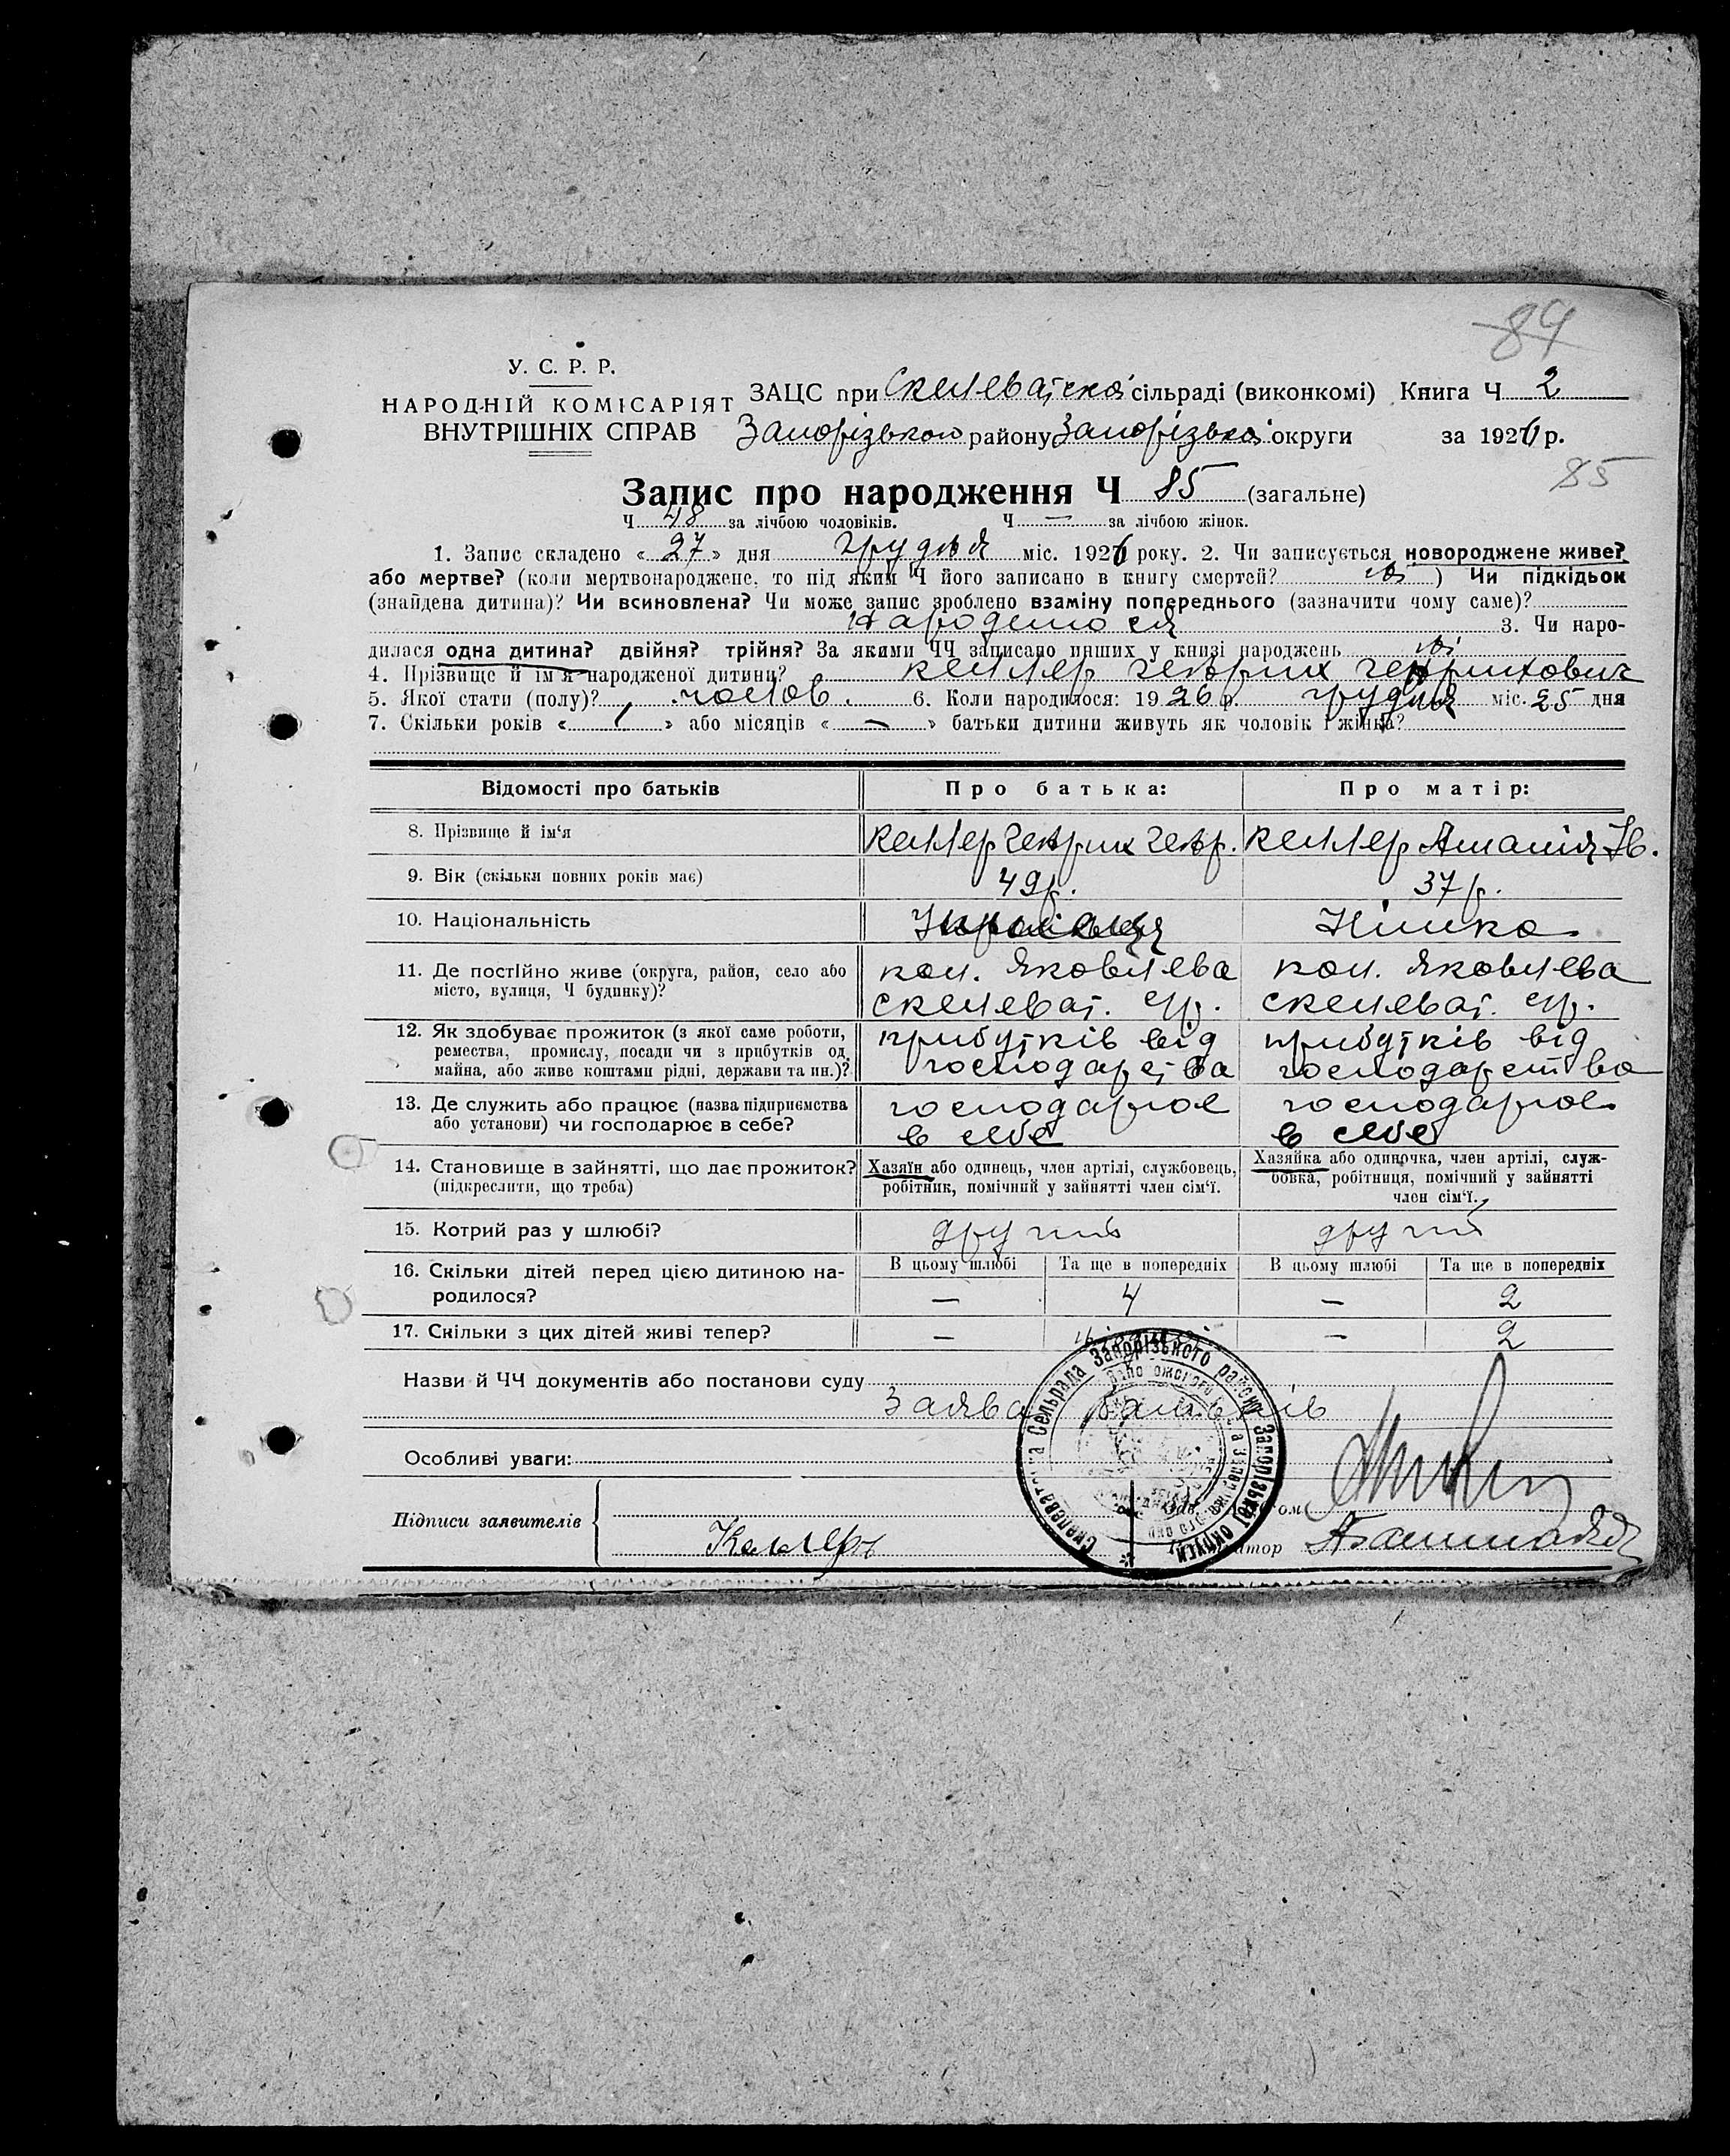 84
У. С. Р. Р.
НАРОДНІЙ КОМІСАРІЯТ
ВНУТРІШНІХ СПРАВ
ЗАЦС при Скелеватській сільраді (виконкомі) Книга Ч 2
Запорізького району Запорізької округи за 1926 р.
85
Запис про народження Ч 85 (загальне)
Ч 48 за лічбою чоловіків. Ч — за лічбою жінок.
1. Запис складено «27» дня грудня міс. 1926 року. 2. Чи записується новороджене живе?
або мертве? (коли мертвонароджене, то під яким Ч його записано в книгу смертей? ні ) Чи підкідьок
(знайдена дитина)? Чи всиновлена? Чи може запис зроблено взаміну попереднього (зазначити чому саме)?
Народилося 3. Чи наро-
дилася одна дитина? двійня? трійня? За якими ЧЧ записано инших у книзі народжень ні
4. Прізвище й ім'я народженої дитини? Келлер Генрих Генрихович
5. Якої стати (полу)? чолов. 6. Коли народилося: 1926 р. грудня міс. 25 дня
7. Скільки років « 1 » або місяців « — » батьки дитини живуть як чоловік і жінка?
Відомості про батьків Про батька: Про матір:
8. Прізвище й ім'я Келлер Генрих Генр. Келлер Амалія Ів.
9. Вік (скільки повних років має) 49 р. 37 р.
10. Національність Німка
11. Де постійно живе (округа, район, село або кол. Яковлева кол. Яковлева
місто, вулиця, Ч будинку)? Скелеват. с/р. Скелеват. с/р.
12. Як здобуває прожиток (з якої саме роботи, прибутків від прибутків від
ремества, промислу, посади чи з прибутків од господарства господарства
майна, або живе коштами рідні, держави та ин.)?
13. Де служить або працює (назва підприємства господарює господарює
або установи) чи господарює в себе? в себе в себе
14. Становище в зайнятті, що дає прожиток? Хазяїн або одинець, член артілі, службовець, Хазяйка або одиночка, член артілі, служ-
(підкреслити, що треба) робітник, помічний у зайнятті член сім'ї. бовка, робітниця, помічний у зайнятті
член сім'ї.
15. Котрий раз у шлюбі? другий другий
16. Скільки дітей перед цією дитиною на- В цьому шлюбі Та ще в попередніх В цьому шлюбі Та ще в попередніх
родилося? — 4 — 2
17. Скільки з цих дітей живі тепер? — — 2
Назви й ЧЧ документів або постанови суду
Заява батьків
Особливі уваги:
Підписи заявителів Келлеръ
Скелеватська Сельрада Запорізького району Запорізької округи